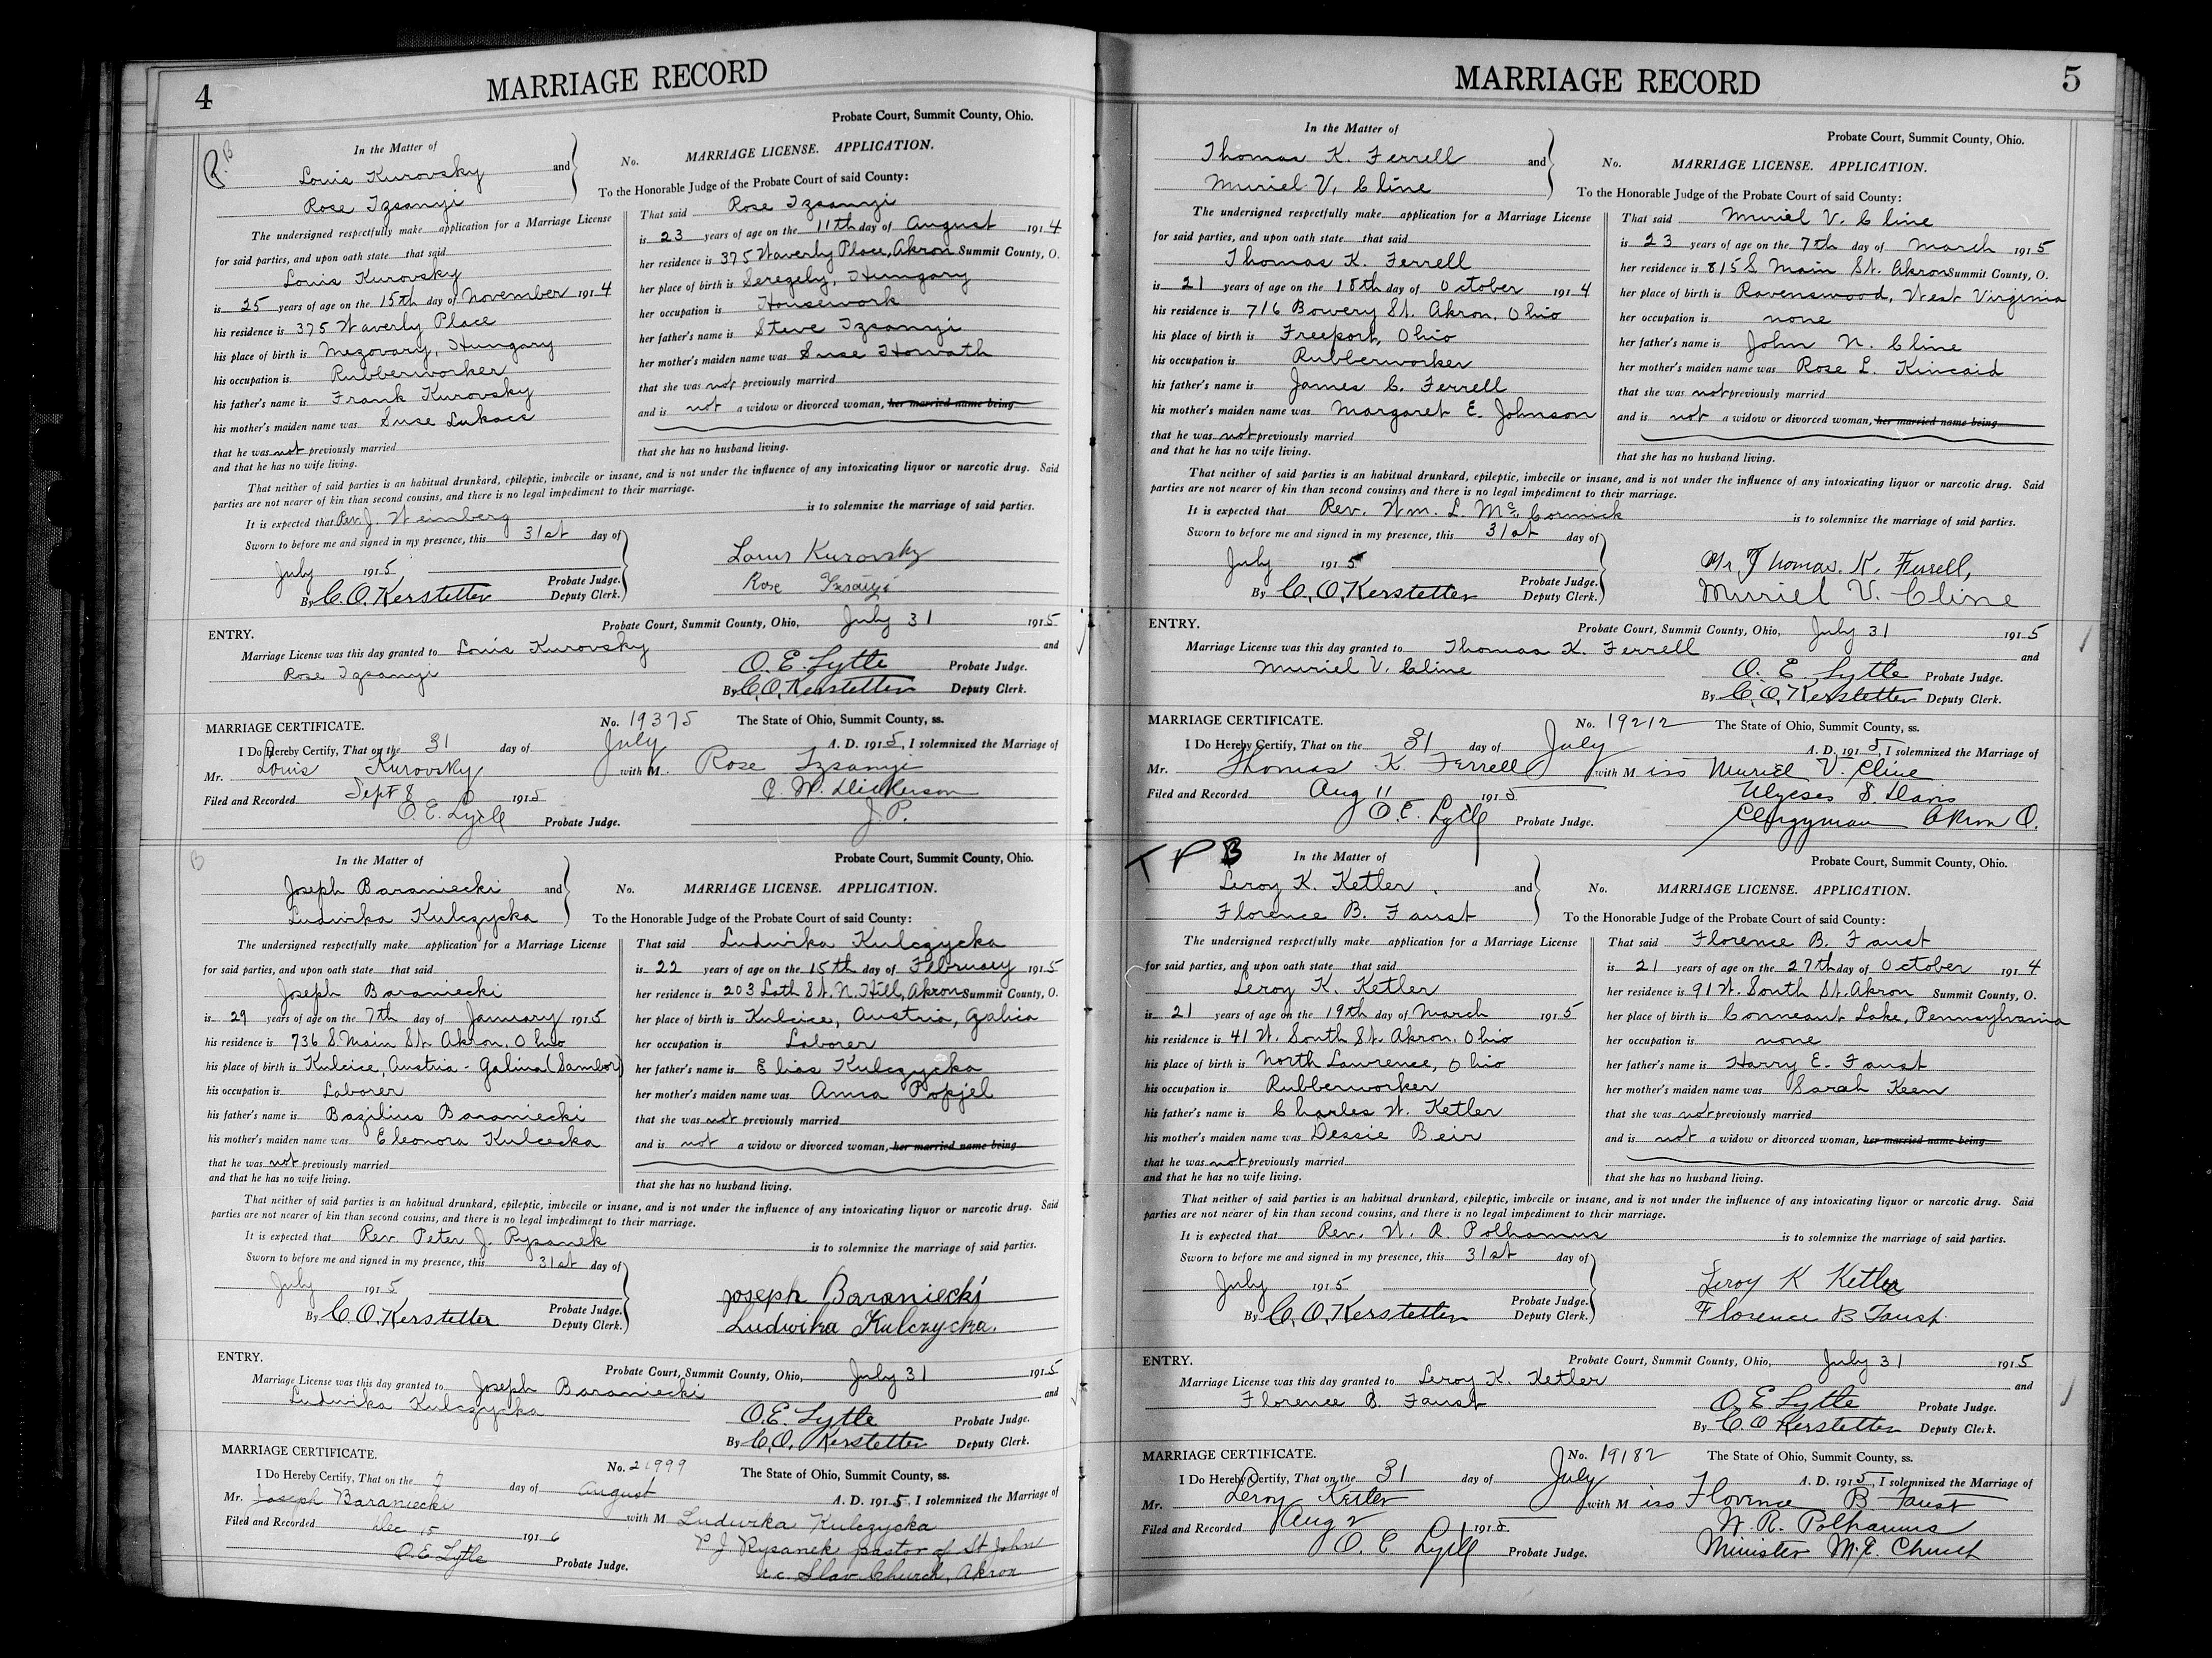 4
MARRIAGE RECORD
Probate Court, Summit County, Ohio.
In the Matter of
Louis Kurovsky and
Rose Izsanyi
No. MARRIAGE LICENSE. APPLICATION.
To the Honorable Judge of the Probate Court of said County:
The undersigned respectfully make application for a Marriage License
for said parties, and upon oath state that said
Louis Kurovsky
is 25 years of age on the 15th day of November 1914
his residence is 375 Waverly Place
his place of birth is Mezovary, Hungary
his occupation is Rubberworker
his father's name is Frank Kurovsky
his mother's maiden name was Suse Lukacs
that he was not previously married
and that he has no wife living.
That said Rose Izsanyi
is 23 years of age on the 11th day of August 1914
her residence is 375 Waverly Place, Akron Summit County, O.
her place of birth is Seregely, Hungary
her occupation is Housework
her father's name is Steve Izsanyi
her mother's maiden name was Suse Horvath
that she was not previously married
and is not a widow or divorced woman, her married name being
that she has no husband living.
That neither of said parties is an habitual drunkard, epileptic, imbecile or insane, and is not under the influence of any intoxicating liquor or narcotic drug. Said
parties are not nearer of kin than second cousins, and there is no legal impediment to their marriage.
It is expected that Rev. J. Weinberg is to solemnize the marriage of said parties.
Sworn to before me and signed in my presence, this 31st day of
July 1915
Probate Judge.
By C. O. Kerstetter Deputy Clerk.
Louis Kurovsky
Rose Izsanyi
ENTRY.
Probate Court, Summit County, Ohio, July 31 1915
Marriage License was this day granted to Louis Kurovsky and
Rose Izsanyi
O. E. Lytle Probate Judge.
By C. O. Kerstetter Deputy Clerk.
MARRIAGE CERTIFICATE.
No. 19375 The State of Ohio, Summit County, ss.
I Do Hereby Certify, That on the 31 day of July A. D. 1915, I solemnized the Marriage of
Mr. Louis Kurovsky with M Rose Izsanyi
Filed and Recorded Sept 8 1915
C. M. Dickerson
O. E. Lytle Probate Judge.
J. P.
B
In the Matter of
Joseph Baraniecki and
Ludwika Kulczycka
Probate Court, Summit County, Ohio.
No. MARRIAGE LICENSE. APPLICATION.
To the Honorable Judge of the Probate Court of said County:
The undersigned respectfully make application for a Marriage License
for said parties, and upon oath state that said
Joseph Baraniecki
is 29 years of age on the 7th day of January 1915
his residence is 736 S. Main St. Akron, Ohio
his place of birth is Kulcice, Austria - Galicia (Sambor)
his occupation is Laborer
his father's name is Bazilius Baraniecki
his mother's maiden name was Eleonora Kulcecka
that he was not previously married
and that he has no wife living.
That said Ludwika Kulczycka
is 22 years of age on the 15th day of February 1915
her residence is 203 Loth St. N. Hill, Akron Summit County, O.
her place of birth is Kulcice, Austria, Galicia
her occupation is Laborer
her father's name is Elias Kulczycka
her mother's maiden name was Anna Popjel
that she was not previously married
and is not a widow or divorced woman, her married name being
that she has no husband living.
That neither of said parties is an habitual drunkard, epileptic, imbecile or insane, and is not under the influence of any intoxicating liquor or narcotic drug. Said
parties are not nearer of kin than second cousins, and there is no legal impediment to their marriage.
It is expected that Rev. Peter J. Rysanek is to solemnize the marriage of said parties.
Sworn to before me and signed in my presence, this 31st day of
July 1915
Probate Judge.
By C. O. Kerstetter Deputy Clerk.
Joseph Baraniecki
Ludwika Kulczycka.
ENTRY.
Probate Court, Summit County, Ohio, July 31 1915
Marriage License was this day granted to Joseph Baraniecki and
Ludwika Kulczycka
O. E. Lytle Probate Judge.
By C. O. Kerstetter Deputy Clerk.
MARRIAGE CERTIFICATE.
No. 21999 The State of Ohio, Summit County, ss.
I Do Hereby Certify, That on the 7 day of August A. D. 1915, I solemnized the Marriage of
Mr. Joseph Baraniecki with M Ludwika Kulczycka
Filed and Recorded Dec 15 1916
P. J. Rysanek pastor of St John
O. E. Lytle Probate Judge.
r.c. Slav Church, Akron
5
MARRIAGE RECORD
Probate Court, Summit County, Ohio.
In the Matter of
Thomas K. Ferrell and
Muriel V. Cline
No. MARRIAGE LICENSE. APPLICATION.
To the Honorable Judge of the Probate Court of said County:
The undersigned respectfully make application for a Marriage License
for said parties, and upon oath state that said
Thomas K. Ferrell
is 21 years of age on the 18th day of October 1914
his residence is 716 Bowery St. Akron, Ohio
his place of birth is Freeport, Ohio
his occupation is Rubberworker
his father's name is James C. Ferrell
his mother's maiden name was Margaret E. Johnson
that he was not previously married
and that he has no wife living.
That said Muriel V. Cline
is 23 years of age on the 7th day of March 1915
her residence is 815 S. Main St. Akron Summit County, O.
her place of birth is Ravenswood, West Virginia
her occupation is none
her father's name is John N. Cline
her mother's maiden name was Rose L. Kincaid
that she was not previously married
and is not a widow or divorced woman, her married name being
that she has no husband living.
That neither of said parties is an habitual drunkard, epileptic, imbecile or insane, and is not under the influence of any intoxicating liquor or narcotic drug. Said
parties are not nearer of kin than second cousins and there is no legal impediment to their marriage.
It is expected that Rev. Wm. L. McCormick is to solemnize the marriage of said parties.
Sworn to before me and signed in my presence, this 31st day of
July 1915
Probate Judge.
By C. O. Kerstetter Deputy Clerk.
Mr. Thomas. K. Ferrell,
Muriel V. Cline
ENTRY.
Probate Court, Summit County, Ohio, July 31 1915
Marriage License was this day granted to Thomas K. Ferrell and
Muriel V. Cline
O. E. Lytle Probate Judge.
By C. O. Kerstetter Deputy Clerk.
MARRIAGE CERTIFICATE.
No. 19212 The State of Ohio, Summit County, ss.
I Do Hereby Certify, That on the 31 day of July A. D. 1915, I solemnized the Marriage of
Mr. Thomas K. Ferrell with Miss Muriel V. Cline
Filed and Recorded Aug 11 1915
Ulysses S. Davis
O. E. Lytle Probate Judge.
Clergyman Akron O.
T P B
In the Matter of
Leroy K. Ketler and
Florence B. Faust
Probate Court, Summit County, Ohio.
No. MARRIAGE LICENSE. APPLICATION.
To the Honorable Judge of the Probate Court of said County:
The undersigned respectfully make application for a Marriage License
for said parties, and upon oath state that said
Leroy K. Ketler
is 21 years of age on the 19th day of March 1915
his residence is 41 W. South St. Akron, Ohio
his place of birth is North Lawrence, Ohio
his occupation is Rubberworker
his father's name is Charles W. Ketler
his mother's maiden name was Dessie Beir
that he was not previously married
and that he has no wife living.
That said Florence B. Faust
is 21 years of age on the 27th day of October 1914
her residence is 91 W. South St. Akron Summit County, O.
her place of birth is Conneaut Lake, Pennsylvania
her occupation is none
her father's name is Harry E. Faust
her mother's maiden name was Sarah Keen
that she was not previously married
and is not a widow or divorced woman, her married name being
that she has no husband living.
That neither of said parties is an habitual drunkard, epileptic, imbecile or insane, and is not under the influence of any intoxicating liquor or narcotic drug. Said
parties are not nearer of kin than second cousins, and there is no legal impediment to their marriage.
It is expected that Rev. W. R. Polhamus is to solemnize the marriage of said parties.
Sworn to before me and signed in my presence, this 31st day of
July 1915
Probate Judge.
By C. O. Kerstetter Deputy Clerk.
Leroy K Ketler
Florence B Faust
ENTRY.
Probate Court, Summit County, Ohio, July 31 1915
Marriage License was this day granted to Leroy K. Ketler and
Florence B. Faust
O. E. Lytle Probate Judge.
By C. O. Kerstetter Deputy Clerk.
MARRIAGE CERTIFICATE.
No. 19182 The State of Ohio, Summit County, ss.
I Do Hereby Certify, That on the 31 day of July A. D. 1915, I solemnized the Marriage of
Mr. Leroy Ketler with Miss Florence B Faust
Filed and Recorded Aug 2 1915
W. R. Polhamus
O. E. Lytle Probate Judge.
Minister M. E. Church